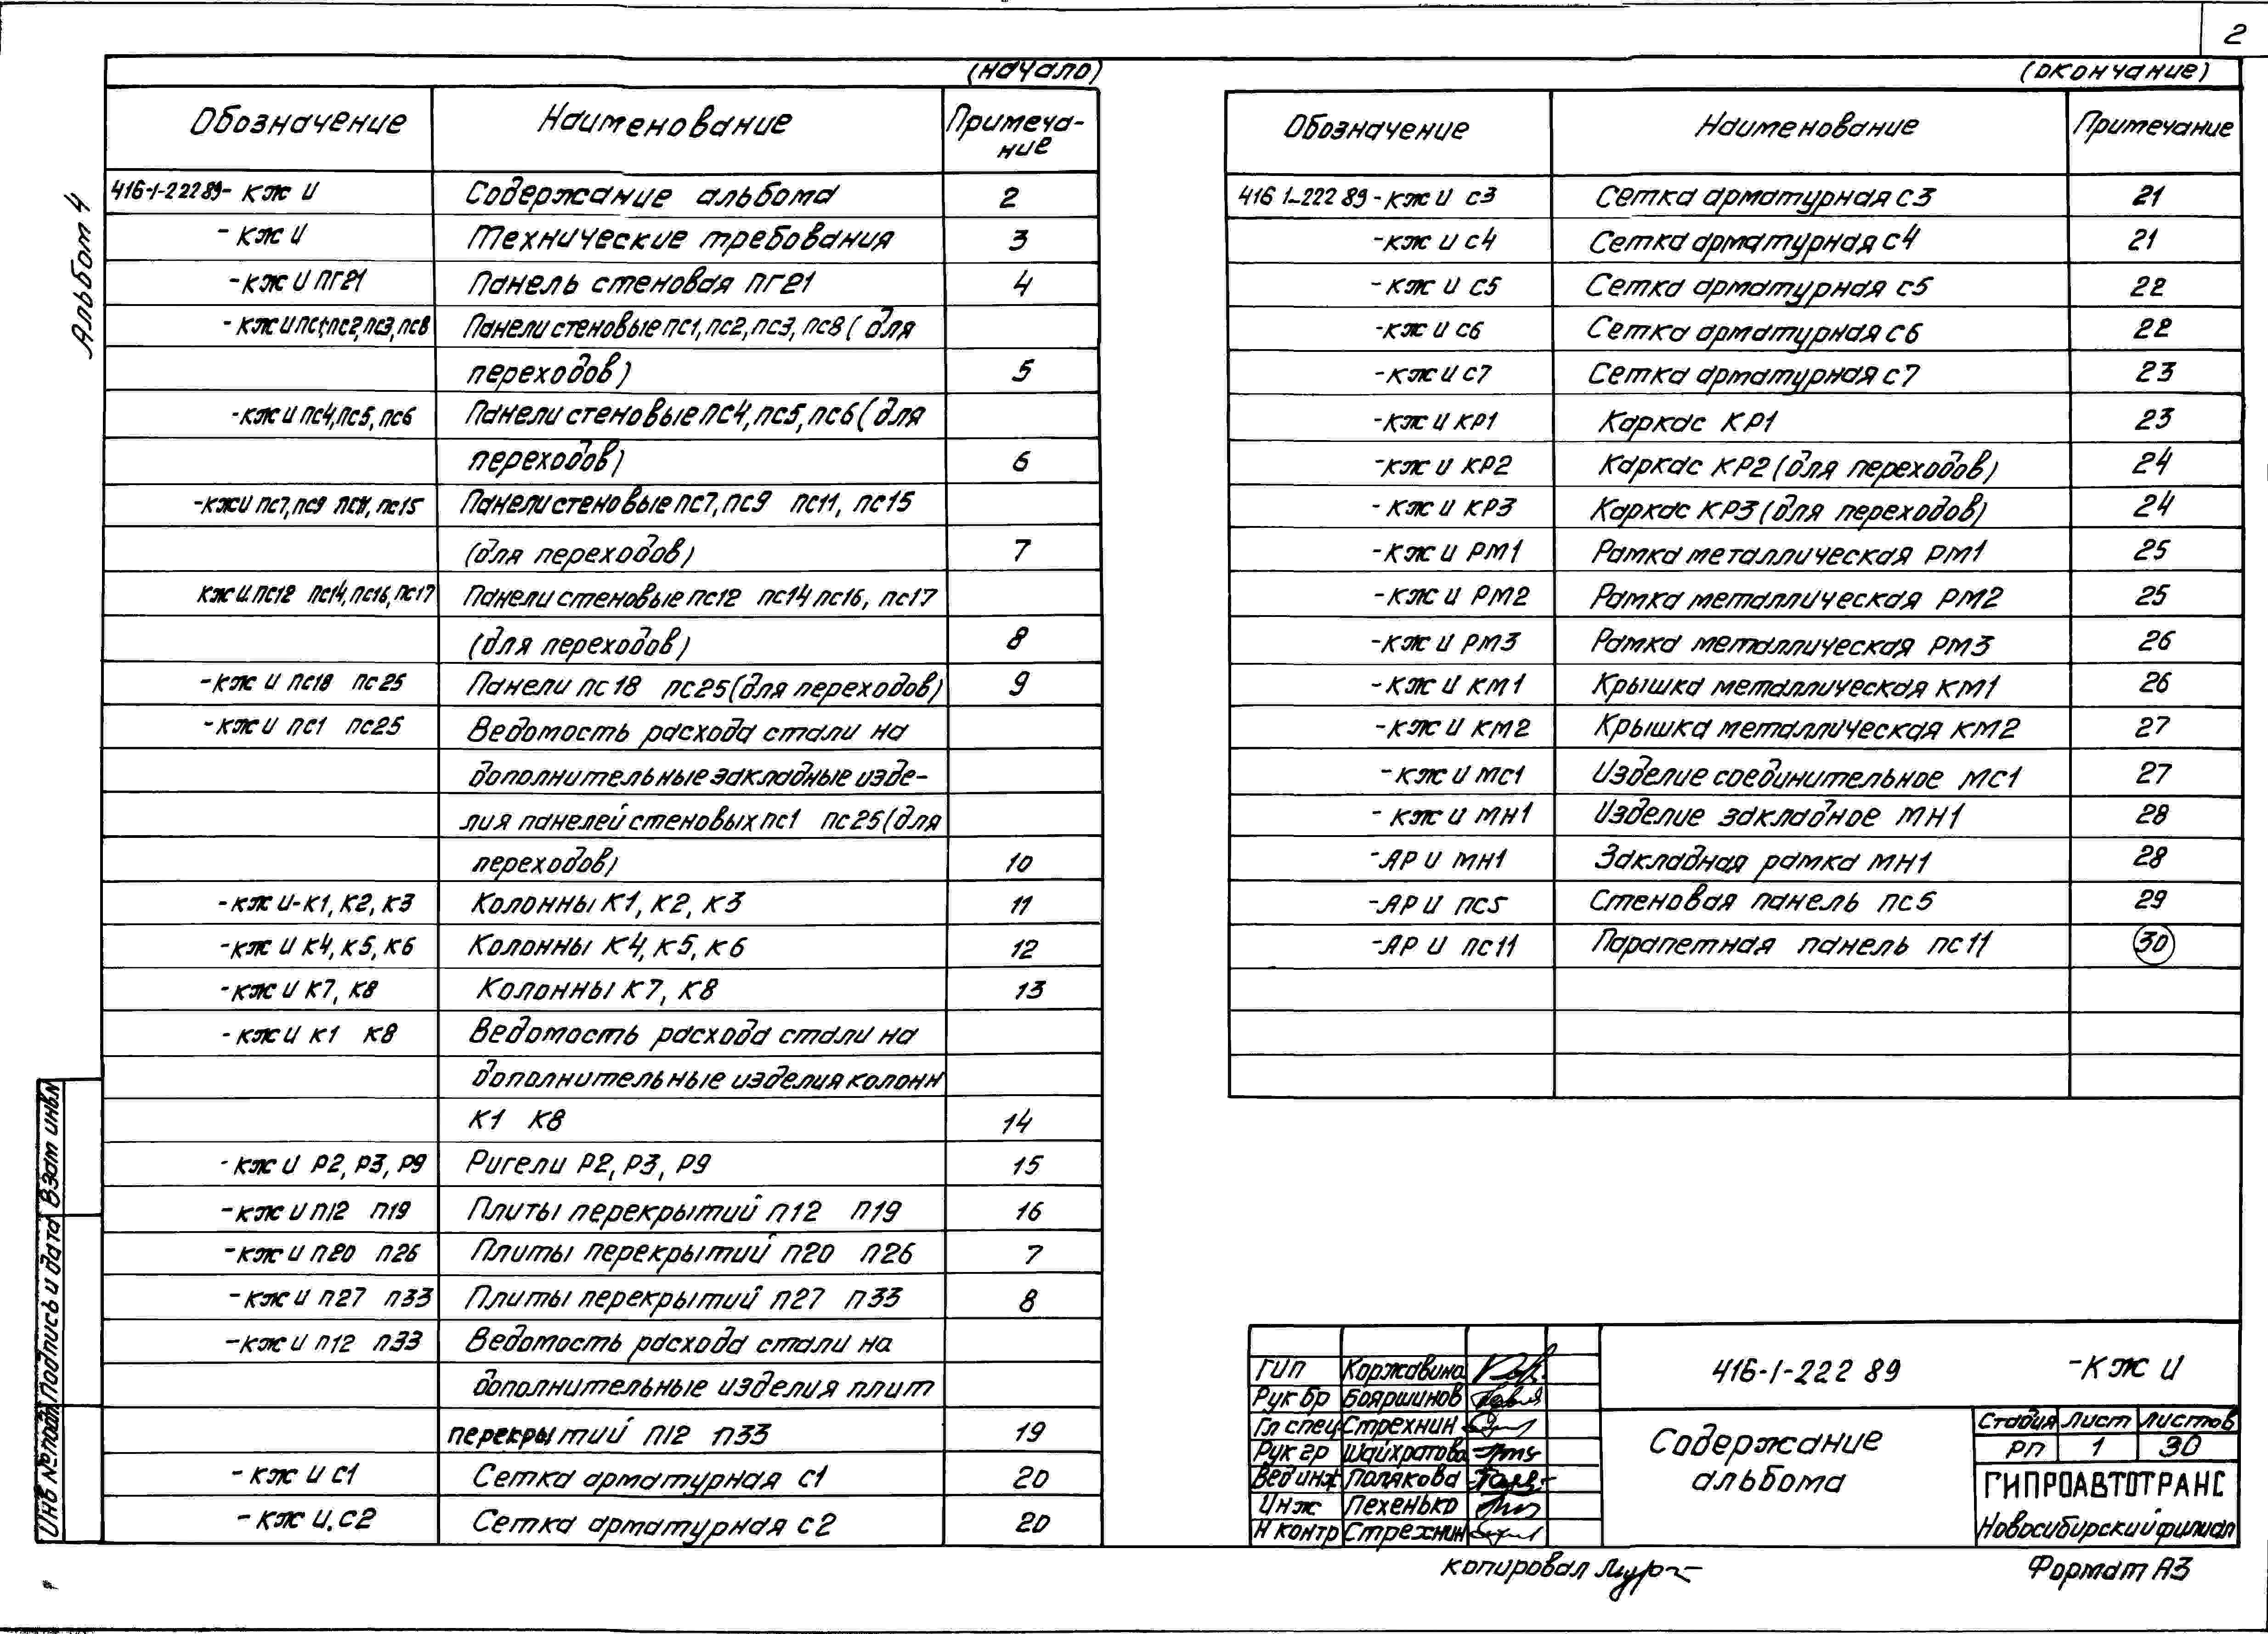 2
Альбом 4
(начало)
Обозначение Наименование Примеча-
ние
416-1-222 89- КЖ И Содержание альбома 2
- КЖ И Технические требования 3
- КЖ И ПГ21 Панель стеновая ПГ21 4
- КЖ И ПС1, ПС2, ПС3, ПС8 Панели стеновые ПС1, ПС2, ПС3, ПС8 (для
переходов) 5
-КЖ И ПС4, ПС5, ПС6 Панели стеновые ПС4, ПС5, ПС6 (для
переходов) 6
-КЖИ ПС7, ПС9 ПС11, ПС15 Панели стеновые ПС7, ПС9 ПС11, ПС15
(для переходов) 7
КЖ И ПС12 ПС14, ПС16, ПС17 Панели стеновые ПС12 ПС14 ПС16, ПС17
(для переходов) 8
-КЖ И ПС18 ПС25 Панели ПС18 ПС25 (для переходов) 9
-КЖ И ПС1 ПС25 Ведомость расхода стали на
дополнительные закладные изде-
лия панелей стеновых ПС1 ПС25 (для
переходов) 10
-КЖ И-К1, К2, К3 Колонны К1, К2, К3 11
-КЖ И К4, К5, К6 Колонны К4, К5, К6 12
-КЖ И К7, К8 Колонны К7, К8 13
-КЖ И К1 К8 Ведомость расхода стали на
дополнительные изделия колонн
К1 К8 14
-КЖ И Р2, Р3, Р9 Ригели Р2, Р3, Р9 15
-КЖ И П12 П19 Плиты перекрытий П12 П19 16
-КЖ И П20 П26 Плиты перекрытий П20 П26 7
-КЖ И П27 П33 Плиты перекрытий П27 П33 8
-КЖ И П12 П33 Ведомость расхода стали на
дополнительные изделия плит
перекрытий П12 П33 19
-КЖ И С1 Сетка арматурная С1 20
-КЖ И.С2 Сетка арматурная С2 20
(окончание)
Обозначение Наименование Примечание
416 1-222 89-КЖ И С3 Сетка арматурная С3 21
-КЖ И С4 Сетка арматурная С4 21
-КЖ И С5 Сетка арматурная С5 22
-КЖ И С6 Сетка арматурная С6 22
-КЖ И С7 Сетка арматурная С7 23
-КЖ И КР1 Каркас КР1 23
-КЖ И КР2 Каркас КР2 (для переходов) 24
-КЖ И КР3 Каркас КР3 (для переходов) 24
-КЖ И РМ1 Рамка металлическая РМ1 25
-КЖ И РМ2 Рамка металлическая РМ2 25
-КЖ И РМ3 Рамка металлическая РМ3 26
-КЖ И КМ1 Крышка металлическая КМ1 26
-КЖ И КМ2 Крышка металлическая КМ2 27
-КЖ И МС1 Изделие соединительное МС1 27
-КЖ И МН1 Изделие закладное МН1 28
-АР И МН1 Закладная рамка МН1 28
-АР И ПС5 Стеновая панель ПС5 29
-АР И ПС11 Парапетная панель ПС11 30
ГИП Коржавина
Рук бр Бояршинов
Гл спец Стрехнин
Рук гр Шайхратова
Вед инж Полякова
Инж Пехенько
Н контр Стрехнин
416-1-222 89 -КЖ И
Содержание
альбома
Стадия Лист Листов
РП 1 30
ГИПРОАВТОТРАНС
Новосибирский филиал
Копировал
Формат А3
Инв № подл Подпись и дата Взам инв №